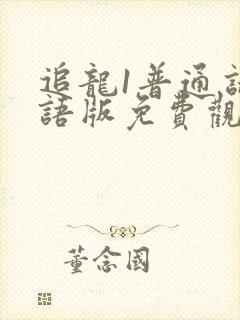 追龍1普通話
語版免費觀
董念國